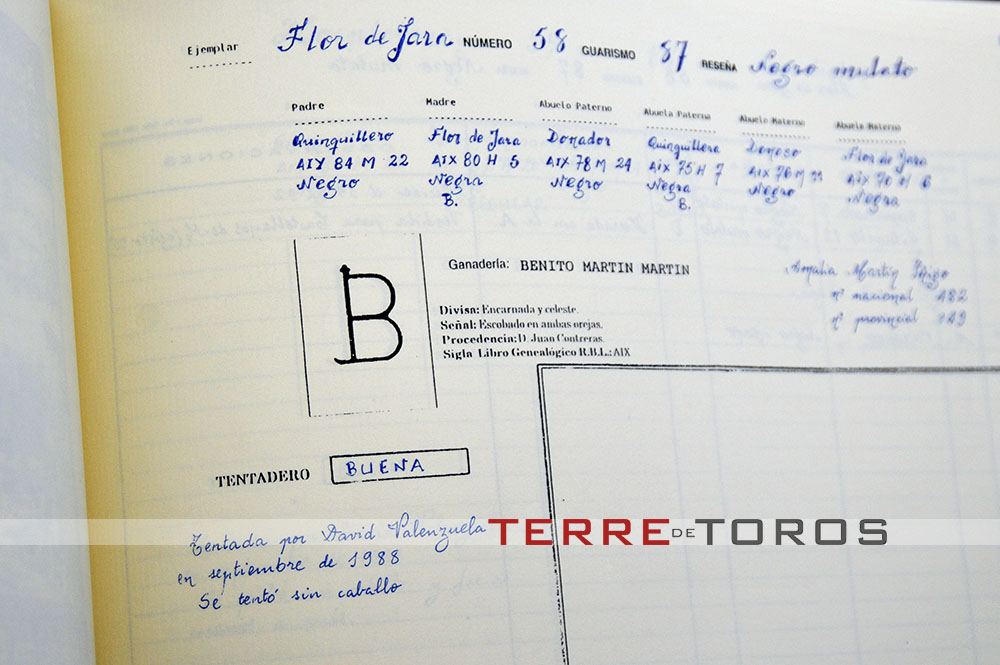 Ejemplar Flor de Jara NÚMERO 58 GUARISMO 87 RESEÑA Negro mulato
Padre Madre Abuelo Paterno Abuela Paterna Abuelo Materno Abuela Materna
Quinquillero Flor de Jara Donador Quinquillera Donoso Flor de Jara
AIX 84 M 22 AIX 80 H 5 AIX 78 M 24 AIX 75 H 7 AIX 76 M AIX 70 H 6
Negro Negra Negro Negra Negro Negra
B. B.
B
Ganadería: BENITO MARTIN MARTIN
Divisa: Encarnada y celeste.
Señal: Escobado en ambas orejas.
Procedencia: D. Juan Contreras.
Sigla Libro Genealógico R.B.L.: AIX
Amalia Martín Iñigo
nº nacional 182
nº provincial 149
TENTADERO BUENA
Tentada por David Valenzuela
en septiembre de 1988
Se tentó sin caballo
TERRE DE TOROS